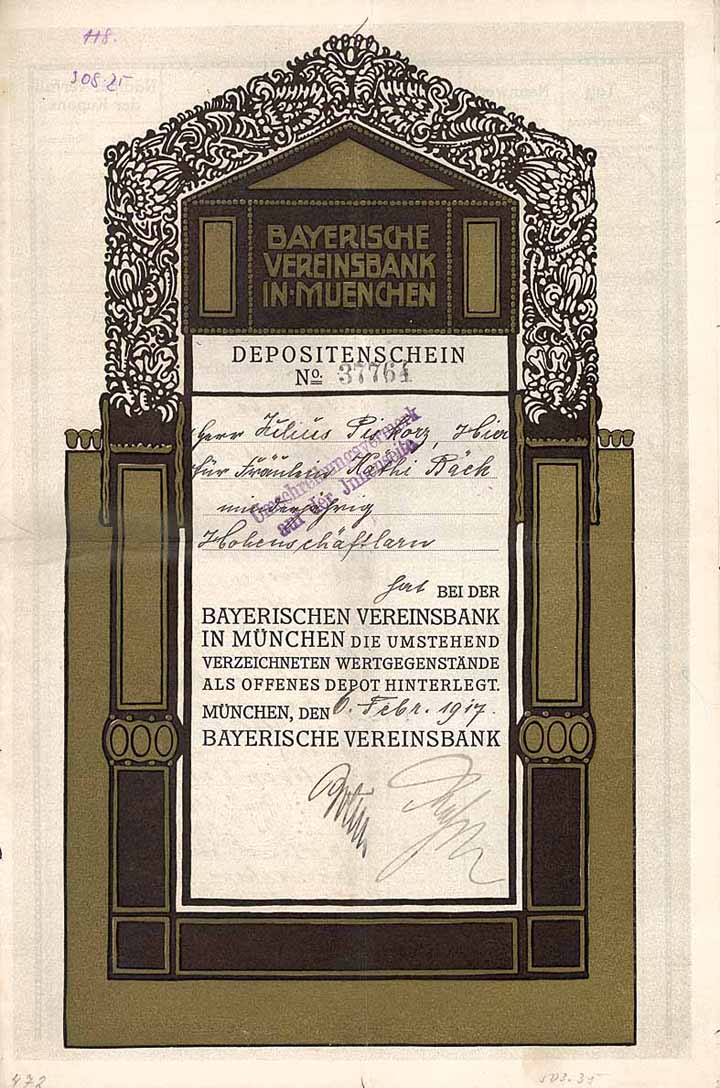 118.
308.25
BAYERISCHE
VEREINSBANK
IN·MUENCHEN
DEPOSITENSCHEIN
No. 37764
Herr Julius Piskorz, Hier
für Fräulein Käthi Bäck
minderjährig
Hohenschäftlarn
Umschreibungsvermerk
auf der Innenseite
hat BEI DER
BAYERISCHEN VEREINSBANK
IN MÜNCHEN DIE UMSTEHEND
VERZEICHNETEN WERTGEGENSTÄNDE
ALS OFFENES DEPOT HINTERLEGT.
MÜNCHEN, DEN 6. Febr. 1917.
BAYERISCHE VEREINSBANK
472
503.35